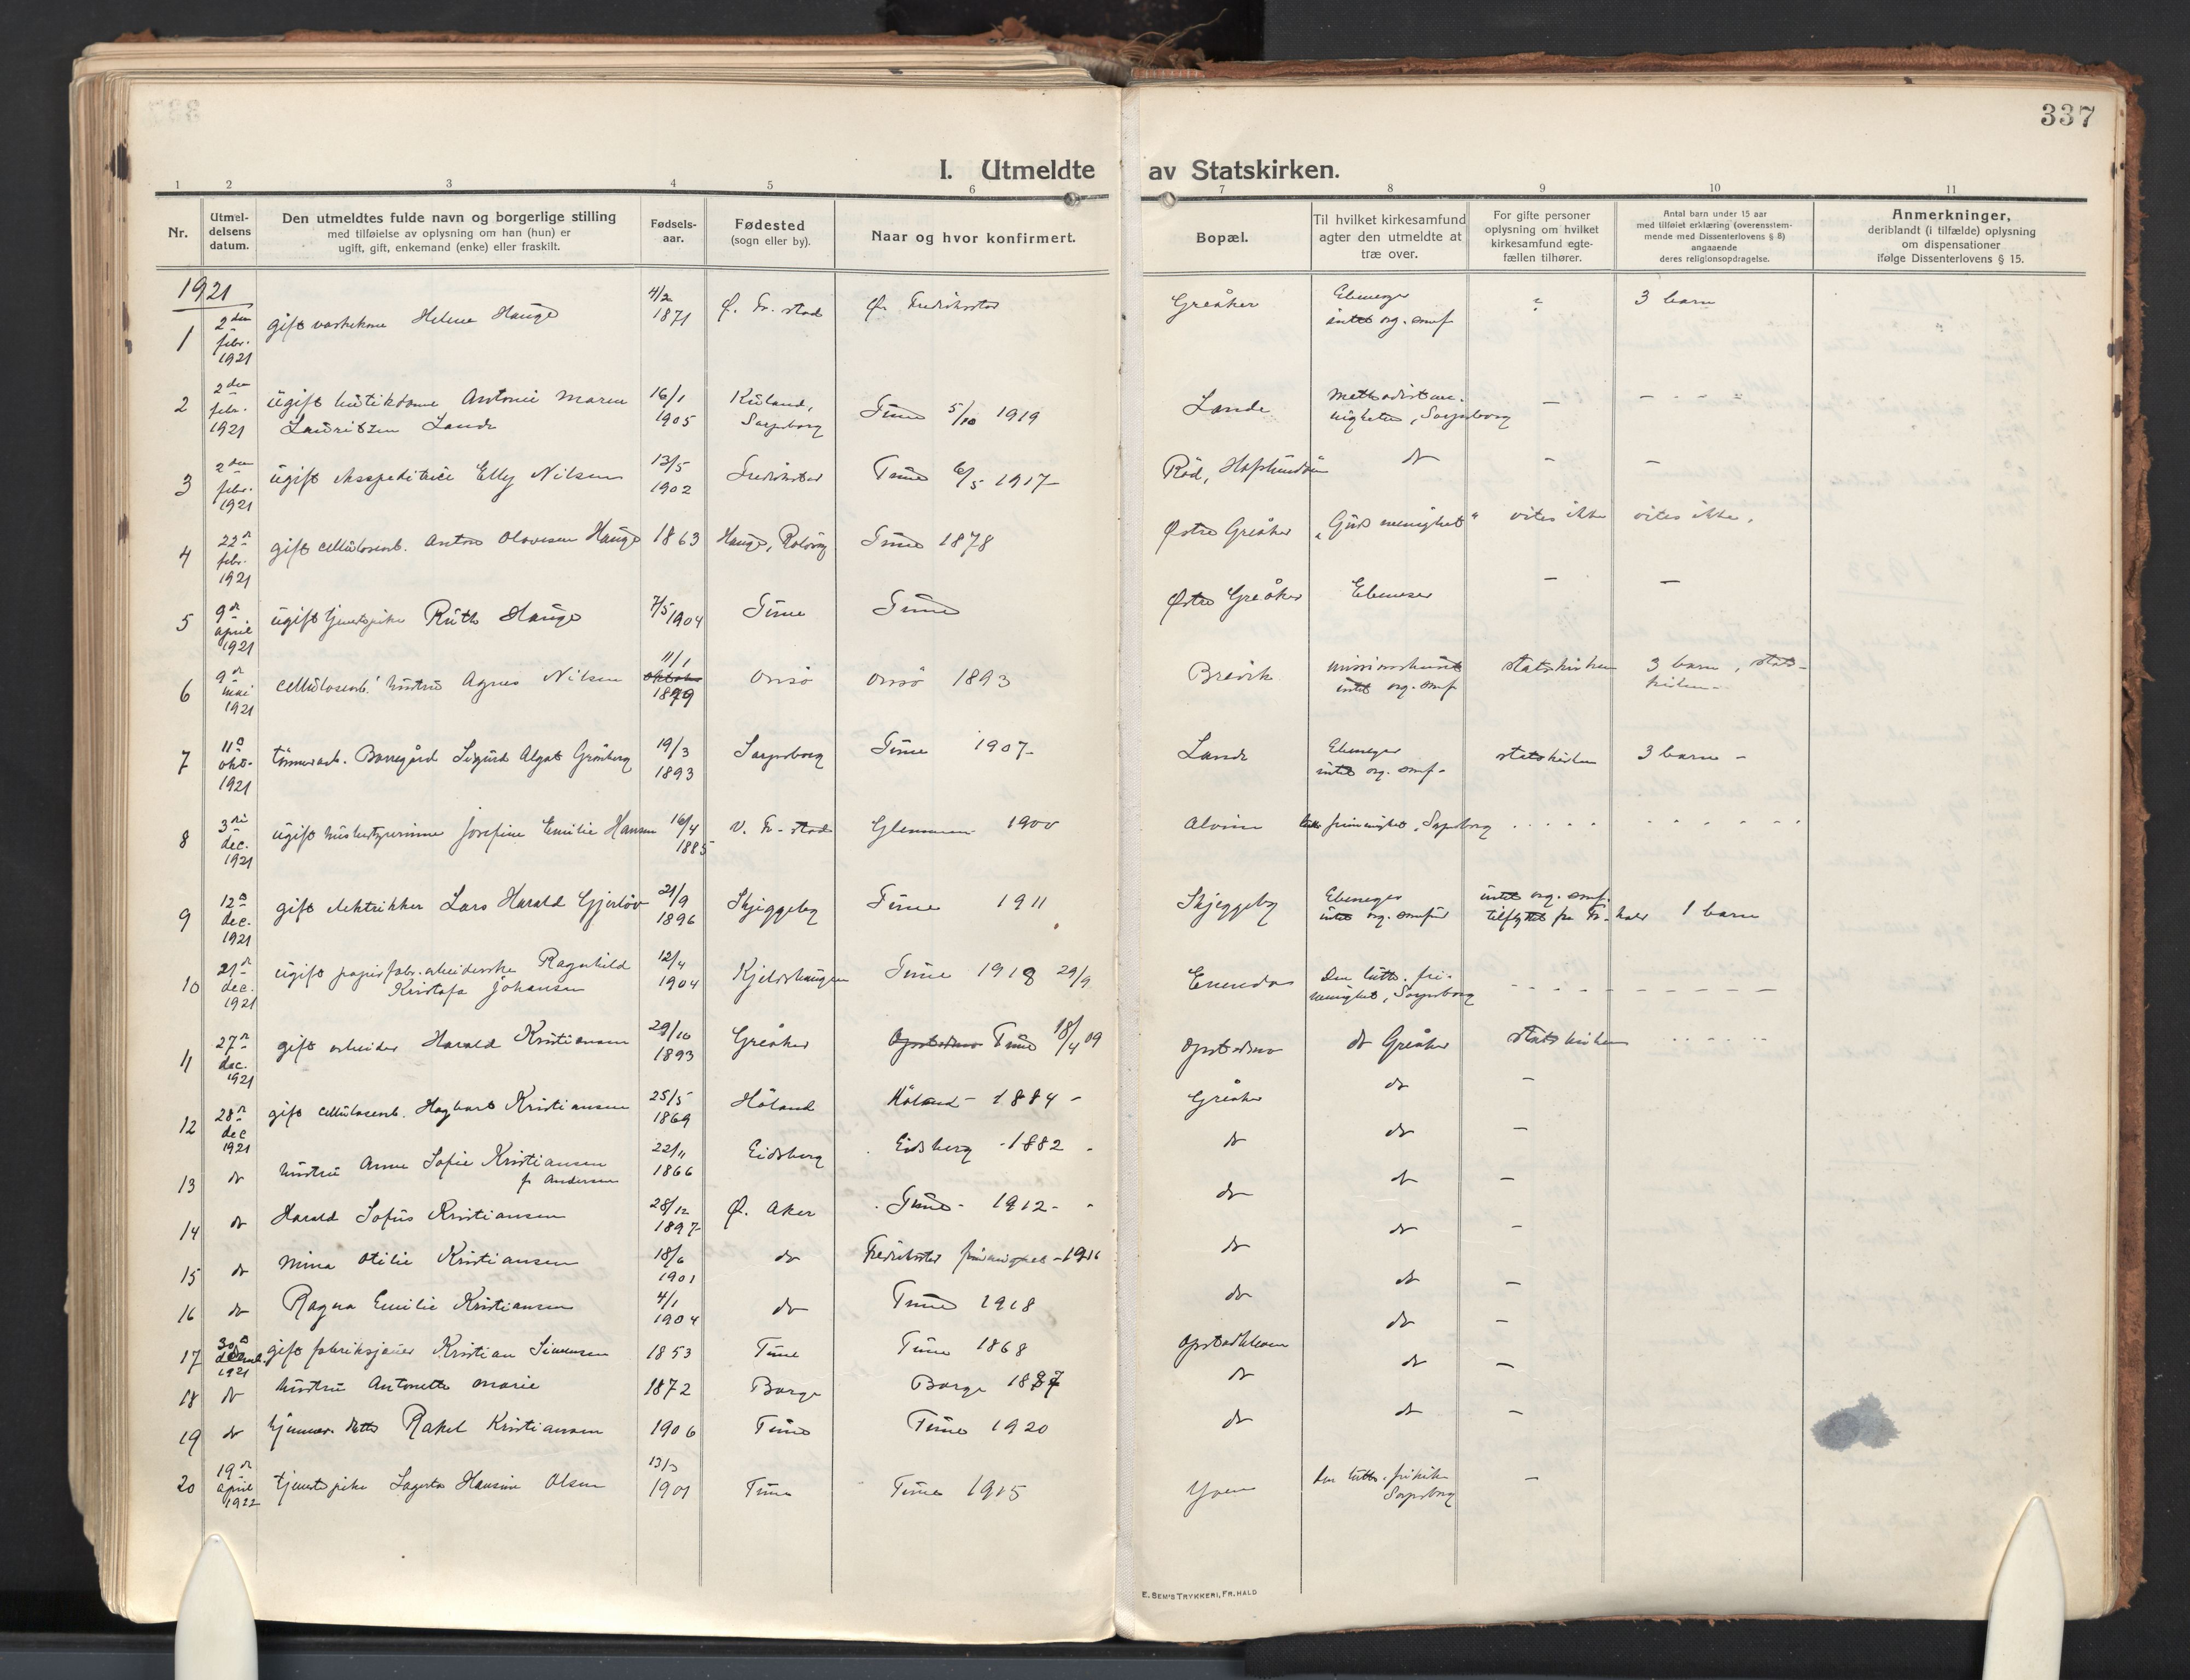 337
I. Utmeldte av Statskirken.
1 2 3 4 5 6 7 8 9 10 11
Nr.
Utmel-
delsens
datum.
Den utmeldtes fulde navn og borgerlige stilling
med tilføielse av oplysning om han (hun) er
ugift, gift, enkemand (enke) eller fraskilt.
Fødsels-
aar.
Fødested
(sogn eller by).
Naar og hvor konfirmert.
Bopæl.
Til hvilket kirkesamfund
agter den utmeldte at
træ over.
For gifte personer
oplysning om hvilket
kirkesamfund egte-
fællen tilhører.
Antal barn under 15 aar
med tilføiet erklæring (overensstem-
mende med Dissenterlovens § 8)
angaaende
deres religionsopdragelse.
Anmerkninger,
deriblandt (i tilfælde) oplysning
om dispensationer
ifølge Dissenterlovens § 15.
1921
1 2den febr. 1921 gift vaskekone Helene Hauge 4/2 1871 Ø. Fr. stad Ø. Fredrikstad Greåker Ebenezer intet org. smf. ? 3 barn
2 2den febr. 1921 ugift butikdame Antonie Maren
Lauritzen Lande 16/1 1905 Kuland, Sarpsborg Tune 5/10 1919 Lande Methodistme-
nigheten, Sarpsborg — —
3 2den febr. 1921 ugift ekspeditrice Elly Nilsen 13/5 1902 Fredrikstad Tune 6/5 1917 Röd, Hafslundsöen do — —
4 22de febr. 1921 gift cellulosearb. Anton Olavesen Hauge 1863 Hauge, Rolvsöy Tune 1878 Østre Greåker „Guds menighet“ vites ikke vites ikke.
5 9de april 1921 ugift tjenestepike Ruth Hauge 7/5 1904 Tune Tune Østre Greåker Ebeneser — —
6 9de mai 1921 cellulosearb.' hustru Agnes Nilsen 11/1 1879 Onsö Onsö 1893 Brevik missionshuset
intet org. smf. statskirken 3 barn, stats-
kirken
7 11te okt. 1921 tömmerarb. Borregård Sigurd Algot Grönberg 19/3 1893 Sarpsborg Tune 1907 Lande Ebenezer
intet org. smf. statskirken 3 barn -
8 3die dec. 1921 ugift husbestyrerinne Josefine Emilie Hansen 16/4 1885 V. Fr. stad Glemmen 1900 Alvim luth. frimenighet, Sarpsborg
9 12te dec. 1921 gift elektrikker Lars Harald Gjerlöv 21/9 1896 Skjeggeby Tune 1911 Skjeggeby Ebenezer
intet org. samfund intet org. smf.
tilflyttet fra Fr.hald 1 barn
10 21de dec. 1921 ugift papirfabr. arbeiderske Ragnhild
Kristofa Johansen 12/4 1904 Kjeldshaugen Tune 1918 29/9 Enendas Den luth. fri-
menighet, Sarpsborg
11 27de dec. 1921 gift arbeider Harald Kristiansen 29/10 1893 Greåker Tune 18/4 09 Opstadmo do Greåker Statskirken
12 28de dec 1921 gift cellulosearb. Hagbart Kristiansen 25/5 1869 Höland Höland - 1884 - Greåker do —
13 do hustru Anne Sofie Kristiansen
f. Andersen 22/11 1866 Eidsberg Eidsberg - 1882 - do do —
14 do Harald Sofus Kristiansen 28/12 1897 Ø. Aker Tune - 1912 - do do —
15 do Mina Otilie Kristiansen 18/6 1901 do Fredrikstad frimenighet - 1916 do do —
16 do Ragna Emilie Kristiansen 4/1 1904 do Tune 1918 do do —
17 30te decemb. 1921 gift fabriksjauer Kristian Simensen 1853 Tune Tune 1868 Opstadkleven do —
18 do hustru Antonette Marie 1872 Borge Borge 1887 do do —
19 do hjemmev. datter Rakel Kristiansen 1906 Tune Tune 1920 do do —
20 19de april 1922 tjenestepike Lagerta Hansine Olsen 13/3 1901 Tune Tune 1915 Yven den luth. frikirke
Sarpsborg —
E. SEM'S TRYKKERI, FR.HALD